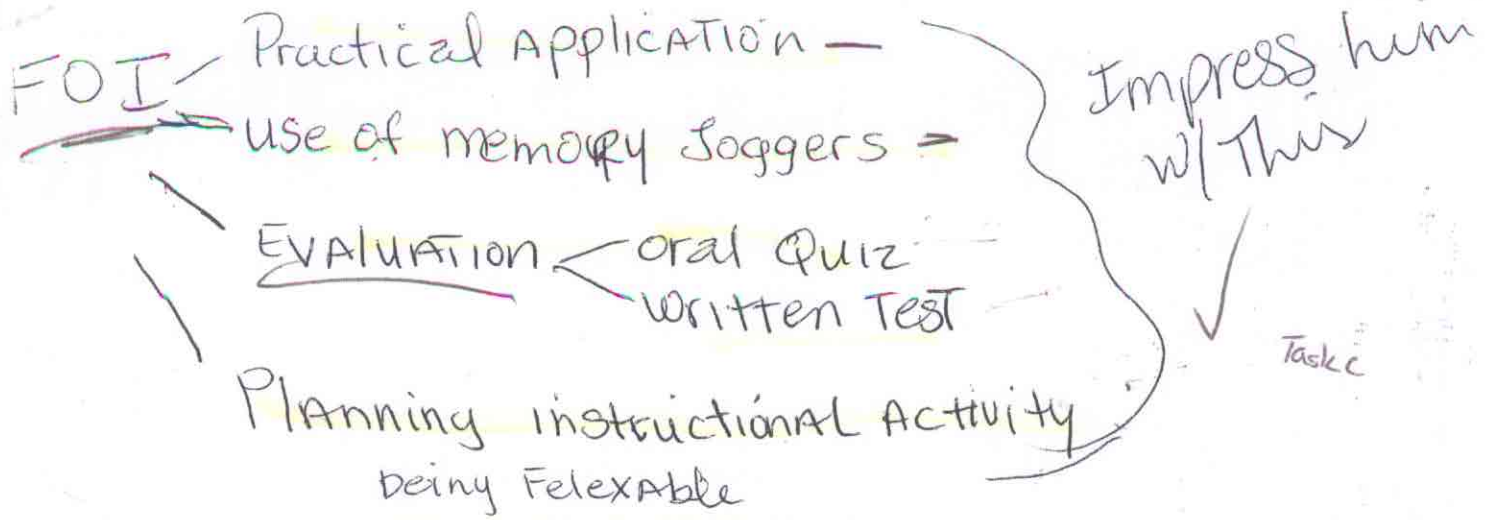 FOI
Practical Application —
Use of memory Joggers =
Evaluation < oral Quiz
Written Test
Planning instructional Activity
being FelexAble
Impress him
w/ This
✓
Task c